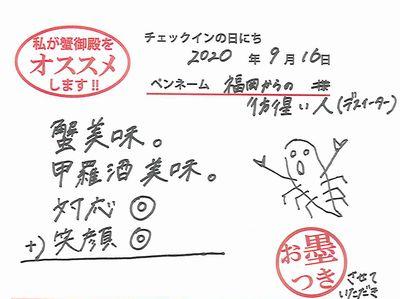 私が蟹御殿を
オススメ
します!!
チェックインの日にち
2020 年 9 月 16 日
ペンネーム 福岡からの
彷徨い人(デスイーター)
蟹美味。
甲羅酒美味。
対応◎
+)笑顔◎
お墨
つき
させて
いただき